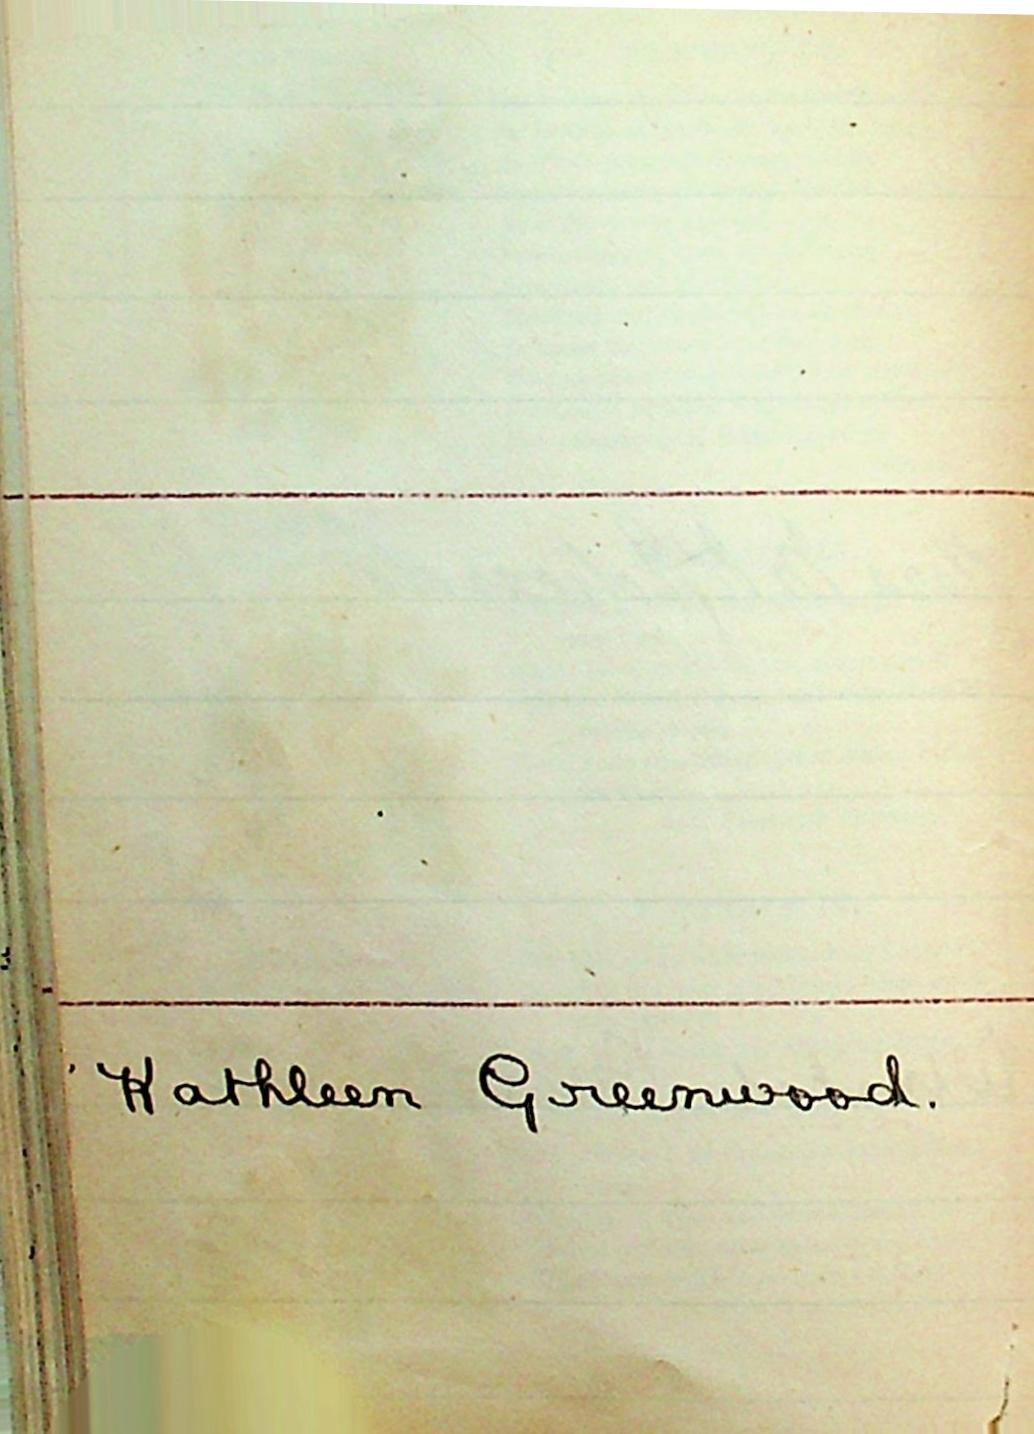 Kathleen Greenwood.